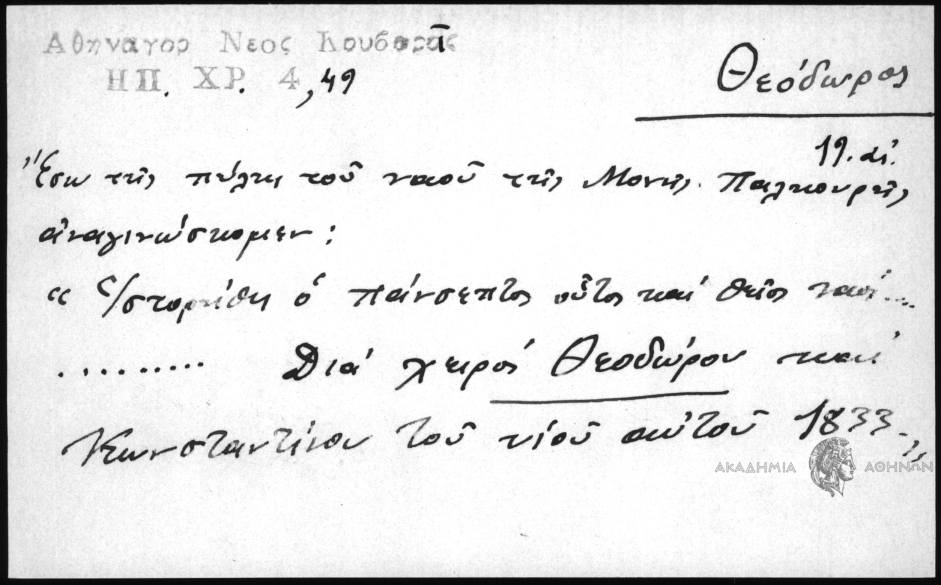 Αθηναγορ Νεος Κουβαρᾶς
ΗΠ. ΧΡ. 4, 49
Θεόδωρος
19. αἰ.
Ἔσω τῆς πύλης τοῦ ναοῦ τῆς Μονῆς Παλιουρῆς
ἀναγινώσκομεν:
« Ἱστορήθη ὁ πάνσεπτος οὗτος καί θεῖος ναός....
......... Διά χειρός Θεοδώρου καί
Κωνσταντίνου τοῦ υἱοῦ αὐτοῦ 1833-,,
ΑΚΑΔΗΜΙΑ ΑΘΗΝΩΝ